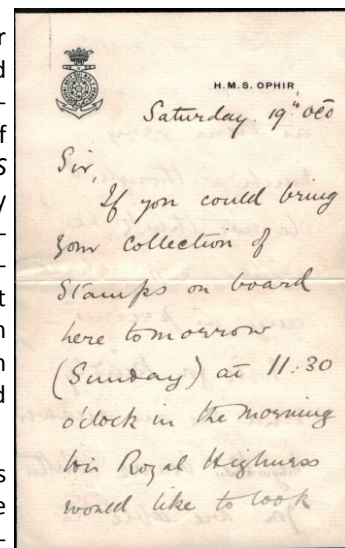 H.M.S. OPHIR
Saturday. 19th Oct
Sir,
If you could bring
your collection of
Stamps on board
here tomorrow
(Sunday) at 11.30
o'clock in the morning
his Royal Highness
would like to look